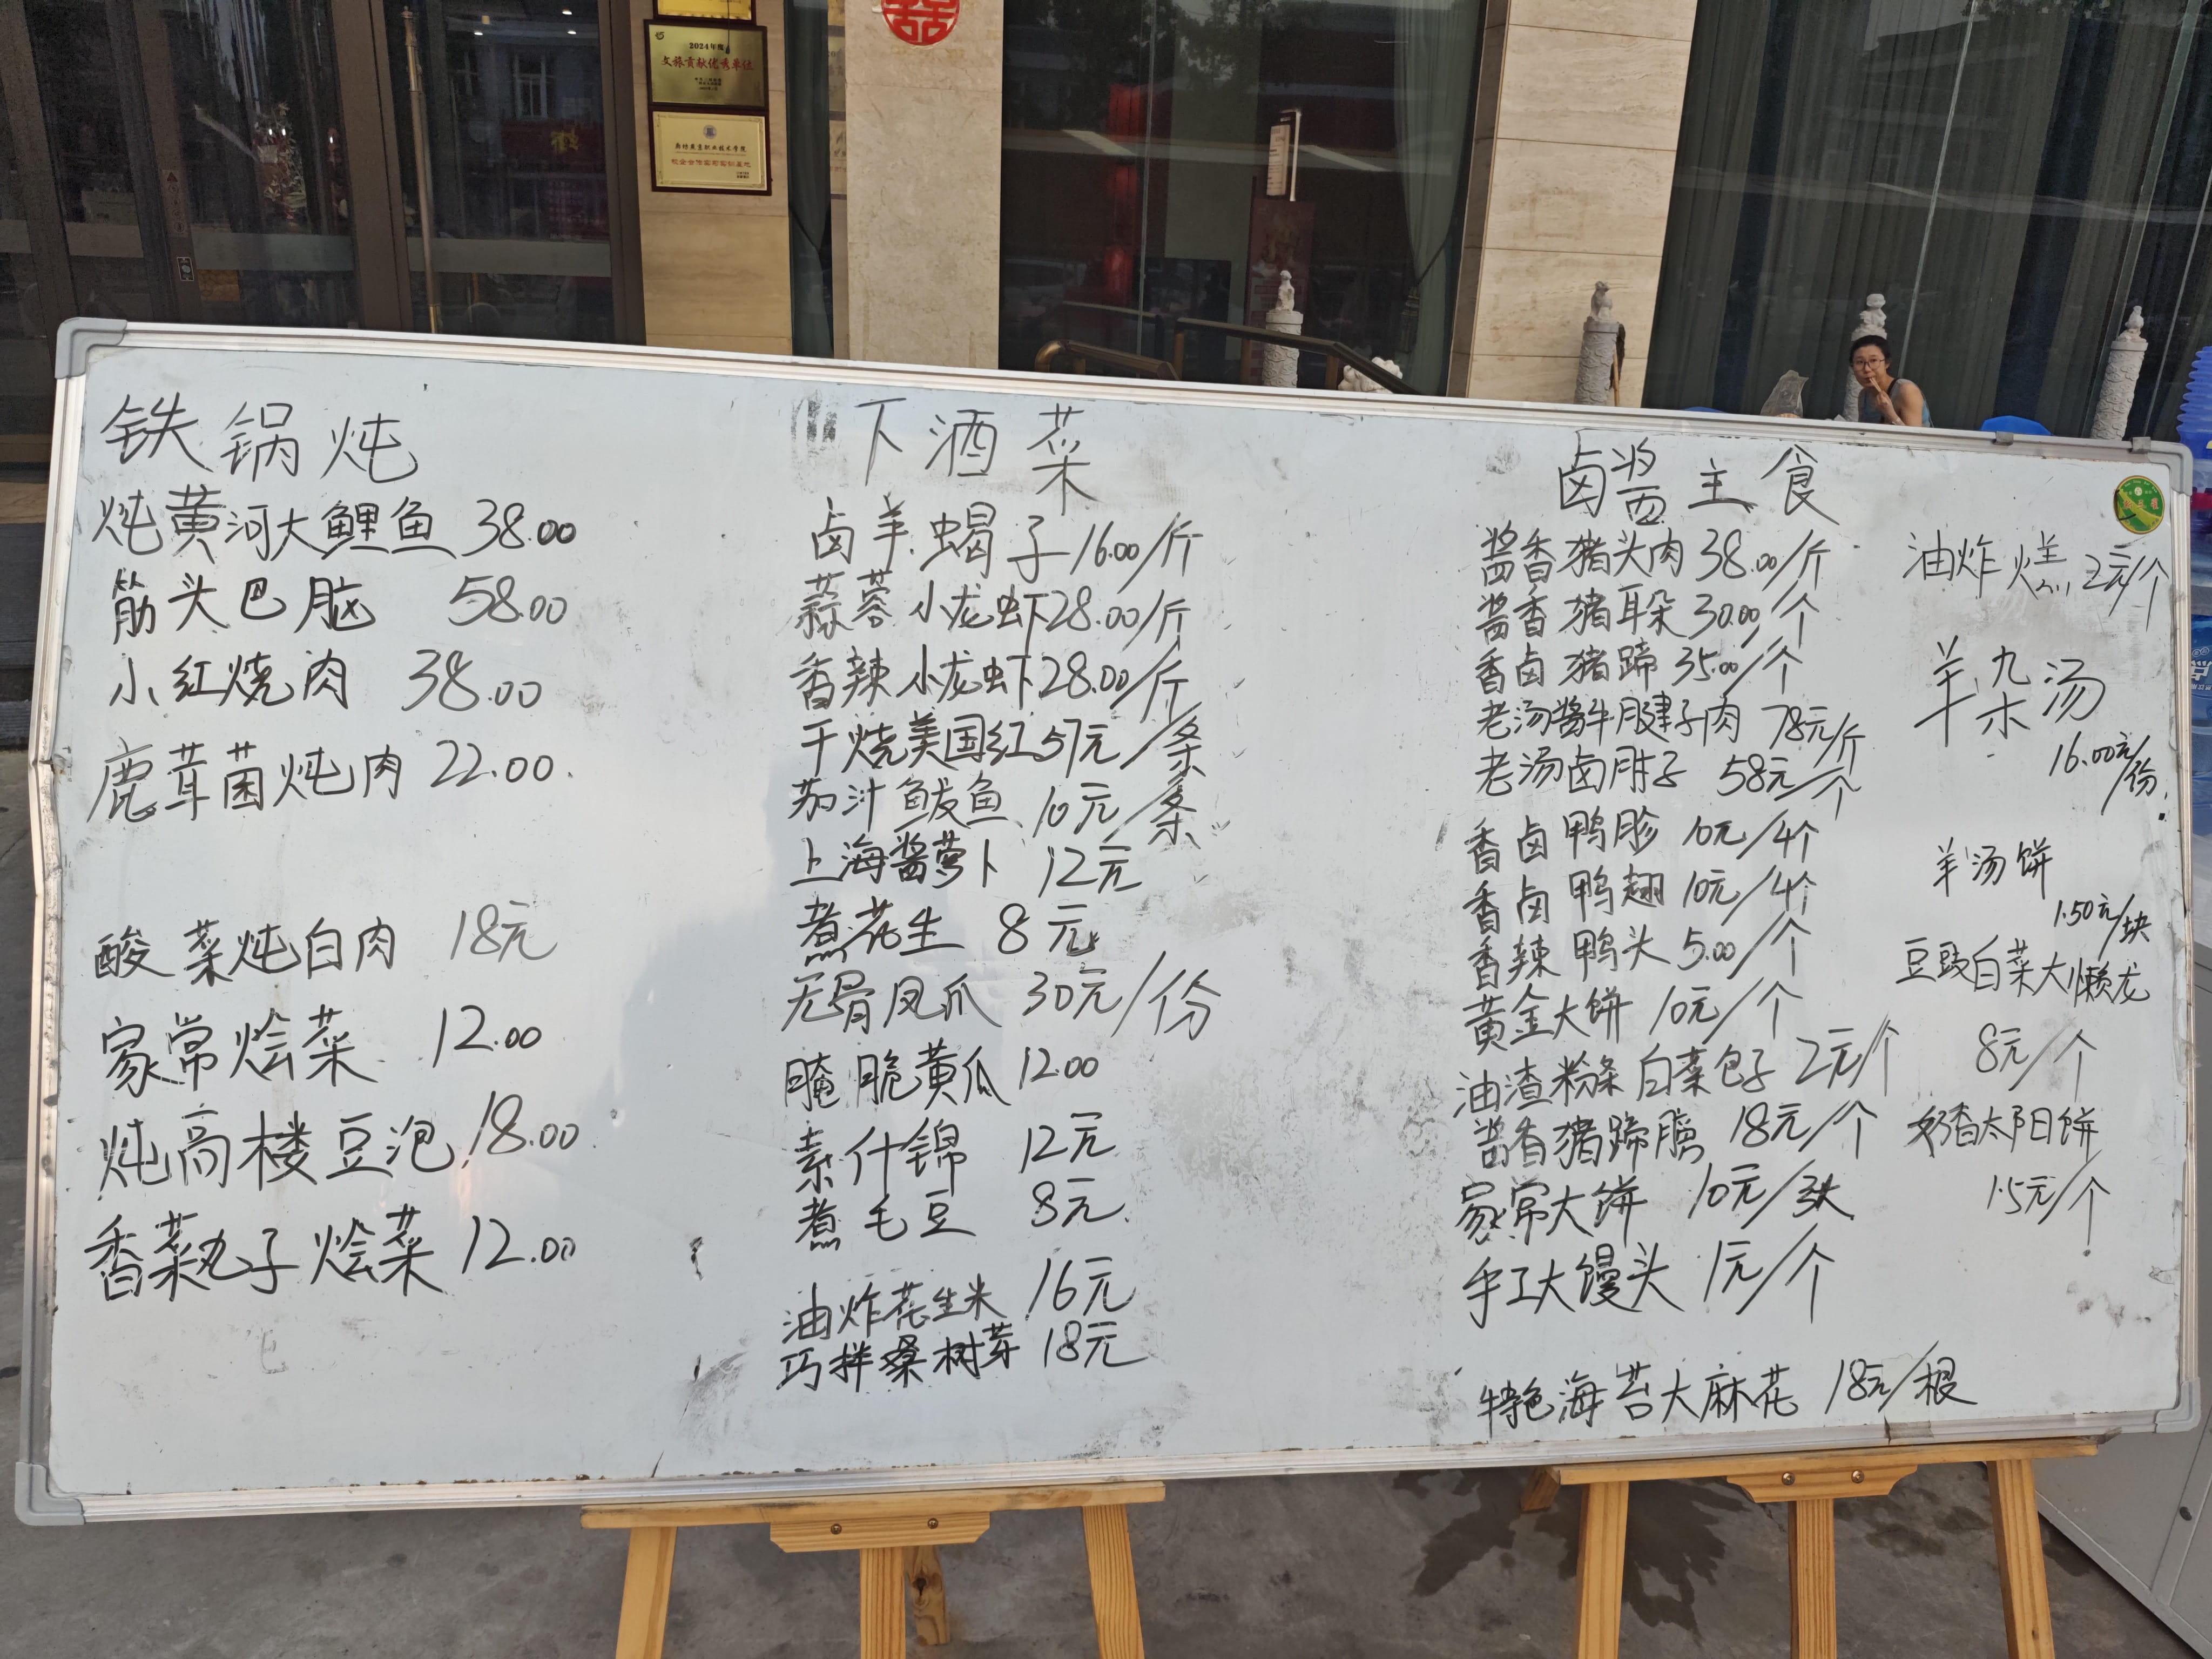 2024年度
文旅贡献优秀单位
校企合作实习实训基地
囍
铁锅炖
炖黄河大鲤鱼 38.00
筋头巴脑 58.00
小红烧肉 38.00
鹿茸菌炖肉 22.00.
酸菜炖白肉 18元
家常烩菜 12.00
炖高楼豆泡 18.00
香菜丸子烩菜 12.00
下酒菜
卤羊蝎子 16.00/斤
蒜蓉小龙虾 28.00/斤
香辣小龙虾 28.00/斤
干烧美国红 57元/条
茄汁鲅鱼 10元/条
上海酱萝卜 12元
煮花生 8元
无骨凤爪 30元/份
腌脆黄瓜 12.00
素什锦 12元
煮毛豆 8元
油炸花生米 16元
巧拌桑树芽 18元
卤酱主食
酱香猪头肉 38.00/斤
酱香猪耳朵 30.00/个
香卤猪蹄 35.00/个
老汤酱牛腱子肉 78元/斤
老汤卤肚子 58元/个
香卤鸭胗 10元/4个
香卤鸭翅 10元/4个
香辣鸭头 5.00/个
黄金大饼 10元/个
油渣粉条白菜包子 2元/个
酱香猪蹄膀 18元/个
家常大饼 10元/张
手工大馒头 1元/个
特色海苔大麻花 18元/根
油炸糕 2元/个
羊杂汤
16.00元/份
羊汤饼
1.50元/块
豆豉白菜大懒龙
8元/个
奶香太阳饼
1.5元/个